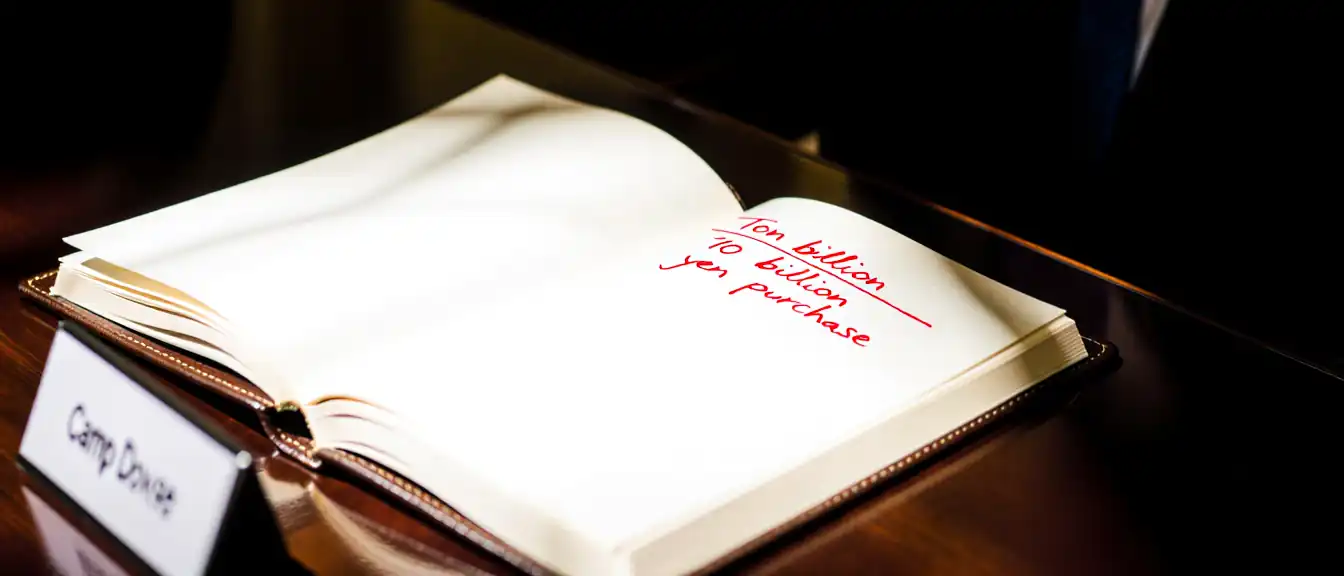 Ton billion
10 billion
yen purchase
Camp Dowre